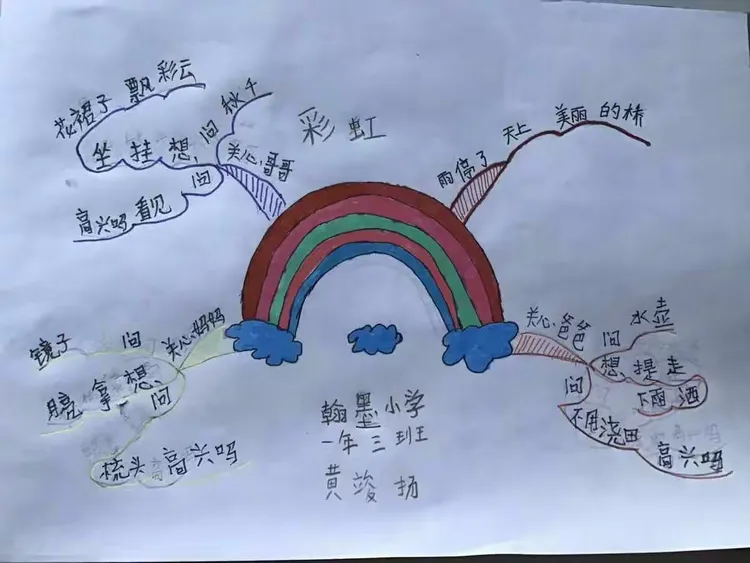 彩虹
雨停了 天上 美丽 的桥
关心爸爸
问 水壶
想、提走
下雨 洒
问
不用浇田
高兴吗
关心妈妈
问 镜子
想、拿
问
梳头 高兴吗
关心哥哥
问 秋千
想、挂 坐
花裙子 飘 彩云
问
看见 高兴吗
翰墨小学
一年三班
黄竣扬